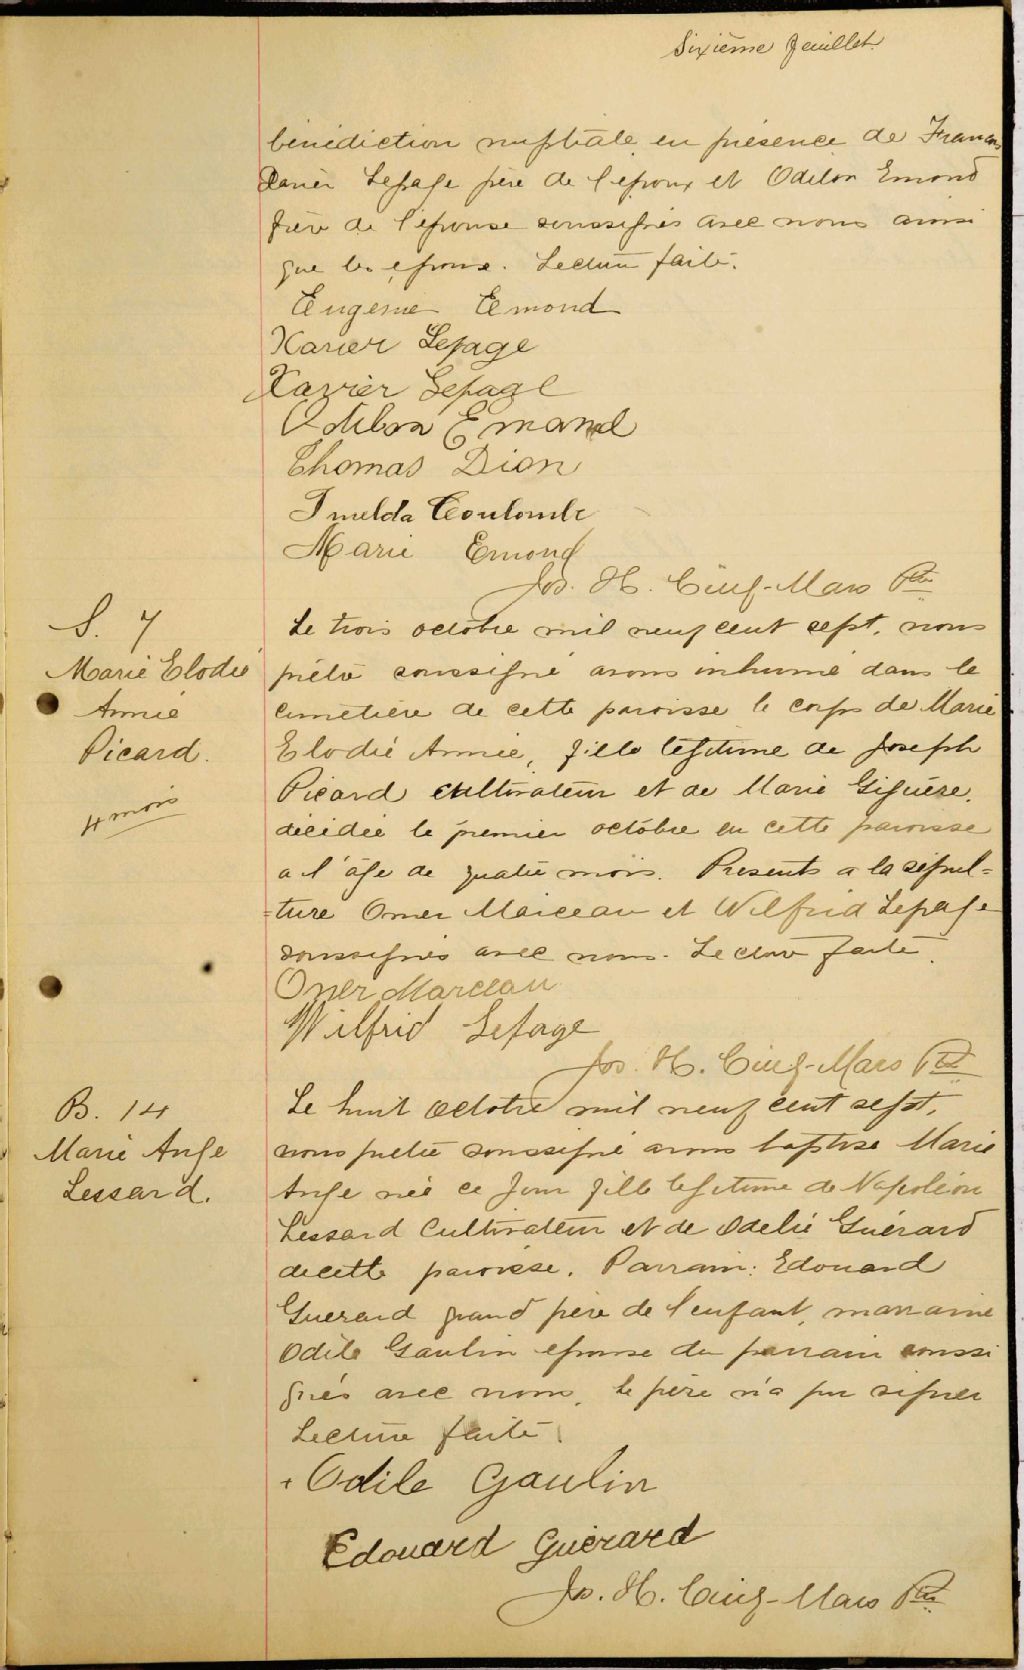 Sixième feuillet.
bénédiction nuptiale en présence de Francois
Xavier Lepage père de l'époux et Odilon Emond
frère de l'épouse soussignés avec nous ainsi
que les époux. Lecture faite.
Eugenie Emond
Xavier Lepage
Xavier Lepage
Odilon Emond
Thomas Dion
Imelda Coulombe
Marie Emond
Jos. H. Cinq-Mars Ptre
S. 7
Marie Elodie
Annie
Picard.
4 mois
Le trois octobre mil neuf cent sept, nous
prêtre soussigné avons inhumé dans le
cimetière de cette paroisse le corps de Marie
Elodie Annie, fille légitime de Joseph
Picard cultivateur et de Marie Giguère,
décédée le premier octobre en cette paroisse
a l'âge de quatre mois. Presents a la sépul=
=ture Omer Marceau et Wilfrid Lepage
soussignés avec nous. Lecture faite.
Omer Marceau
Wilfrid Lepage
Jos. H. Cinq-Mars Ptre
B. 14
Marie Ange
Lessard.
Le huit octobre mil neuf cent sept,
nous prêtre soussigné avons baptisé Marie
Ange née ce jour fille légitime de Napoléon
Lessard cultivateur et de Odelie Guérard
de cette paroisse. Parrain: Edouard
Guerard grand père de l'enfant, marraine
Odile Gaulin epouse du parrain soussi
gnés avec nous, le père n'a pu signer
Lecture faite
Odile Gaulin
Edouard Guérard
Jos. H. Cinq-Mars Ptre